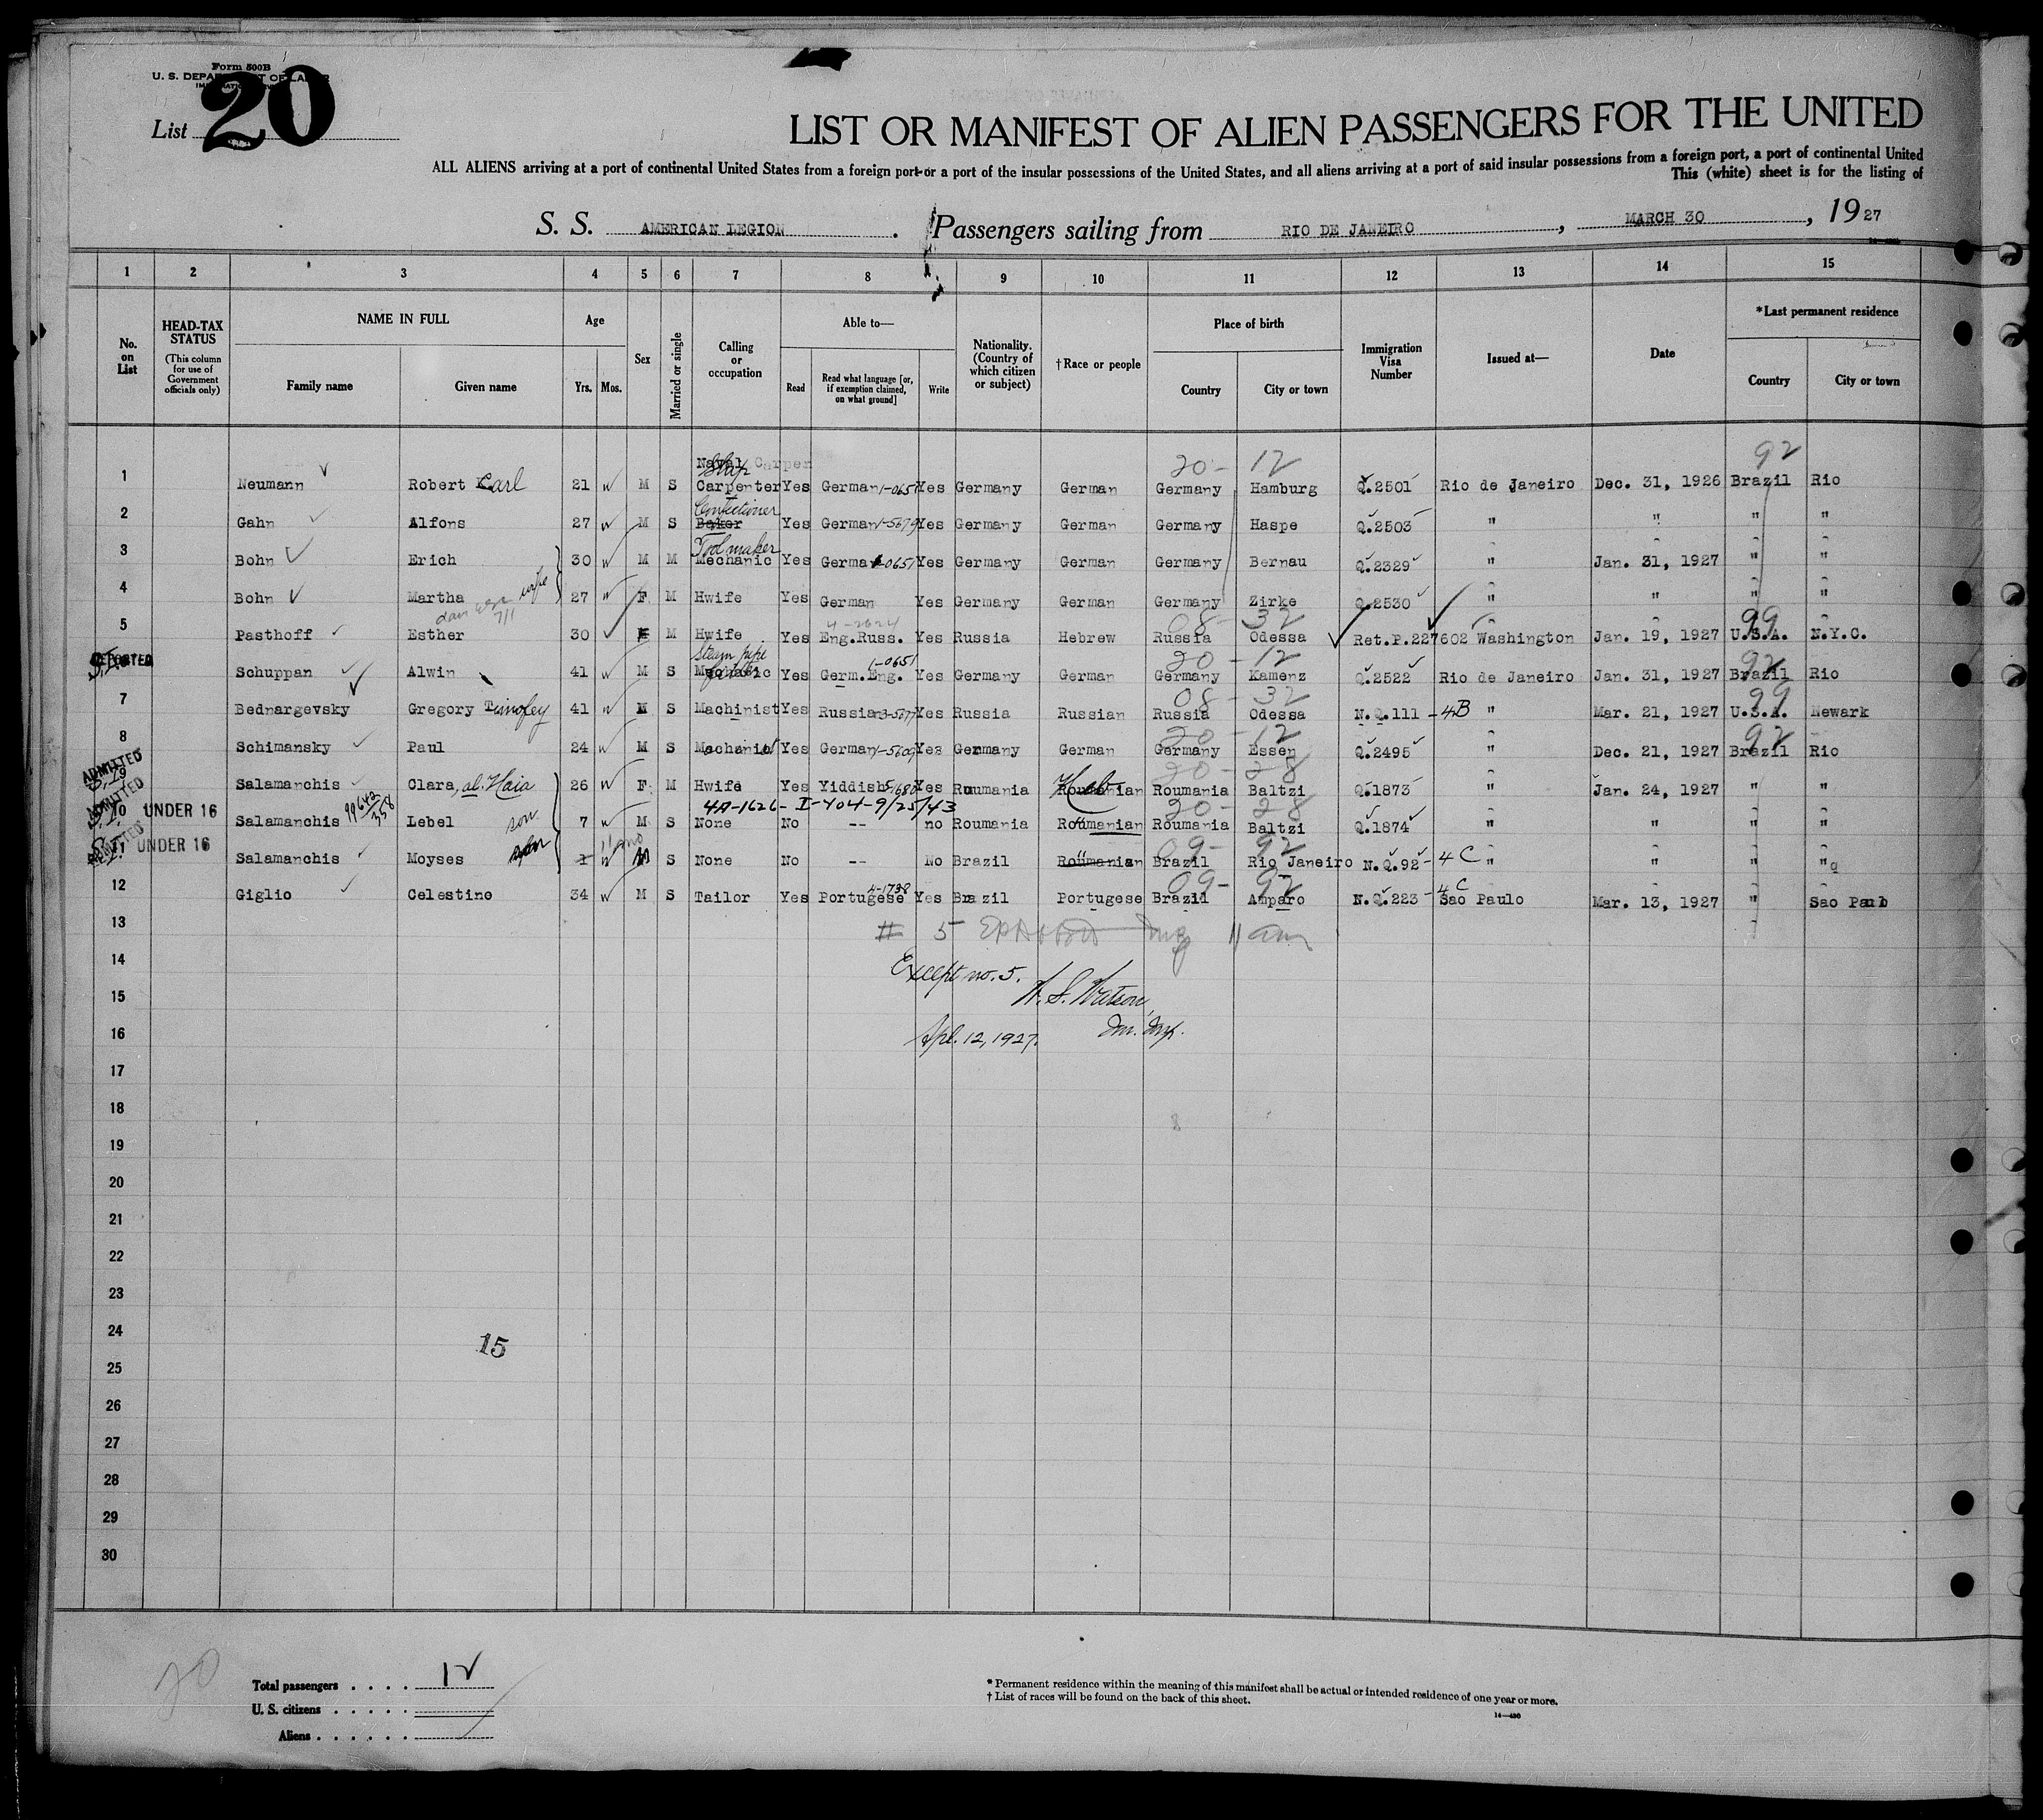 Form 500B
U. S. DEPARTMENT OF LABOR
List 20
LIST OR MANIFEST OF ALIEN PASSENGERS FOR THE UNITED
ALL ALIENS arriving at a port of continental United States from a foreign port or a port of the insular possessions of the United States, and all aliens arriving at a port of said insular possessions from a foreign port, a port of continental United
This (white) sheet is for the listing of
S. S. AMERICAN LEGION . Passengers sailing from RIO DE JANEIRO , MARCH 30 , 1927
1 2 3 4 5 6 7 8 9 10 11 12 13 14 15
No. on List
HEAD-TAX STATUS (This column for use of Government officials only)
NAME IN FULL Family name Given name
Age Yrs. Mos.
Sex
Married or single
Calling or occupation
Able to— Read Read what language [or, if exemption claimed, on what ground] Write
Nationality. (Country of which citizen or subject)
†Race or people
Place of birth Country City or town
Immigration Visa Number
Issued at—
Date
*Last permanent residence Country City or town
Naval Carpen Ship 20- 12 92
1 Neumann Robert Carl 21 M S Carpenter Yes German 1-0657 Yes Germany German Germany Hamburg Q.2501 Rio de Janeiro Dec. 31, 1926 Brazil Rio
Confectioner
2 Gahn Alfons 27 M S Baker Yes German 1-5679 Yes Germany German Germany Haspe Q.2503 " " " "
Tool maker
3 Bohn Erich 30 M M Mechanic Yes German 1-0651 Yes Germany German Germany Bernau Q.2329 " Jan. 31, 1927 " "
4 Bohn Martha wife 27 F M Hwife Yes German Yes Germany German Germany Zirke Q.2530 " " " "
4-2624 08- 32 99
5 Pasthoff Esther 30 F M Hwife Yes Eng.Russ. Yes Russia Hebrew Russia Odessa Ret.P.227602 Washington Jan. 19, 1927 U.S.A. N.Y.C.
Steam pipe fitter 1-0651 20-12 92
DEPORTED Schuppan Alwin 41 M S Mechanic Yes Germ.Eng. Yes Germany German Germany Kamenz Q.2522 Rio de Janeiro Jan. 31, 1927 Brazil Rio
08- 32 99
7 Bednargevsky Gregory Timofey 41 M S Machinist Yes Russian 3-5077 Yes Russia Russian Russia Odessa N.Q.111 -4B " Mar. 21, 1927 U.S.A. Newark
20-12 92
8 Schimansky Paul 24 M S Machanist Yes German 1-5609 Yes Germany German Germany Essen Q.2495 " Dec. 21, 1927 Brazil Rio
20-28
ADMITTED S.I.9 Salamanchis Clara, al. Haia 26 F M Hwife Yes Yiddish 5/680 Yes Roumania Roumanian Heb Roumania Baltzi Q.1873 " Jan. 24, 1927 " "
4A-1626- I-404-9/25/43 20-28
ADMITTED S.I.10 UNDER 16 Salamanchis 99642/358 Lebel son 7 M S None No -- no Roumania Roumanian Roumania Baltzi Q.1874 " " " "
11 mo 09- 92
ADMITTED UNDER 16 Salamanchis Moyses son 1 M S None No -- No Brazil Roumanian Brazil Rio Janeiro N.Q.92 -4C " " " "
4-1738 09- 92 4C
12 Giglio Celestino 34 M S Tailor Yes Portugese Yes Brazil Portugese Brazil Amparo N.Q.223 - Sao Paulo Mar. 13, 1927 " Sao Paulo
13
# 5
14
Except no. 5.
15
W. S. Watson
16
Apl. 12, 1927. Im. Insp.
17
18
19
20
21
22
23
24
15
25
26
27
28
29
30
20
Total passengers . . . . 12
U. S. citizens . . . . .
Aliens . . . . . .
* Permanent residence within the meaning of this manifest shall be actual or intended residence of one year or more.
† List of races will be found on the back of this sheet.
14—430